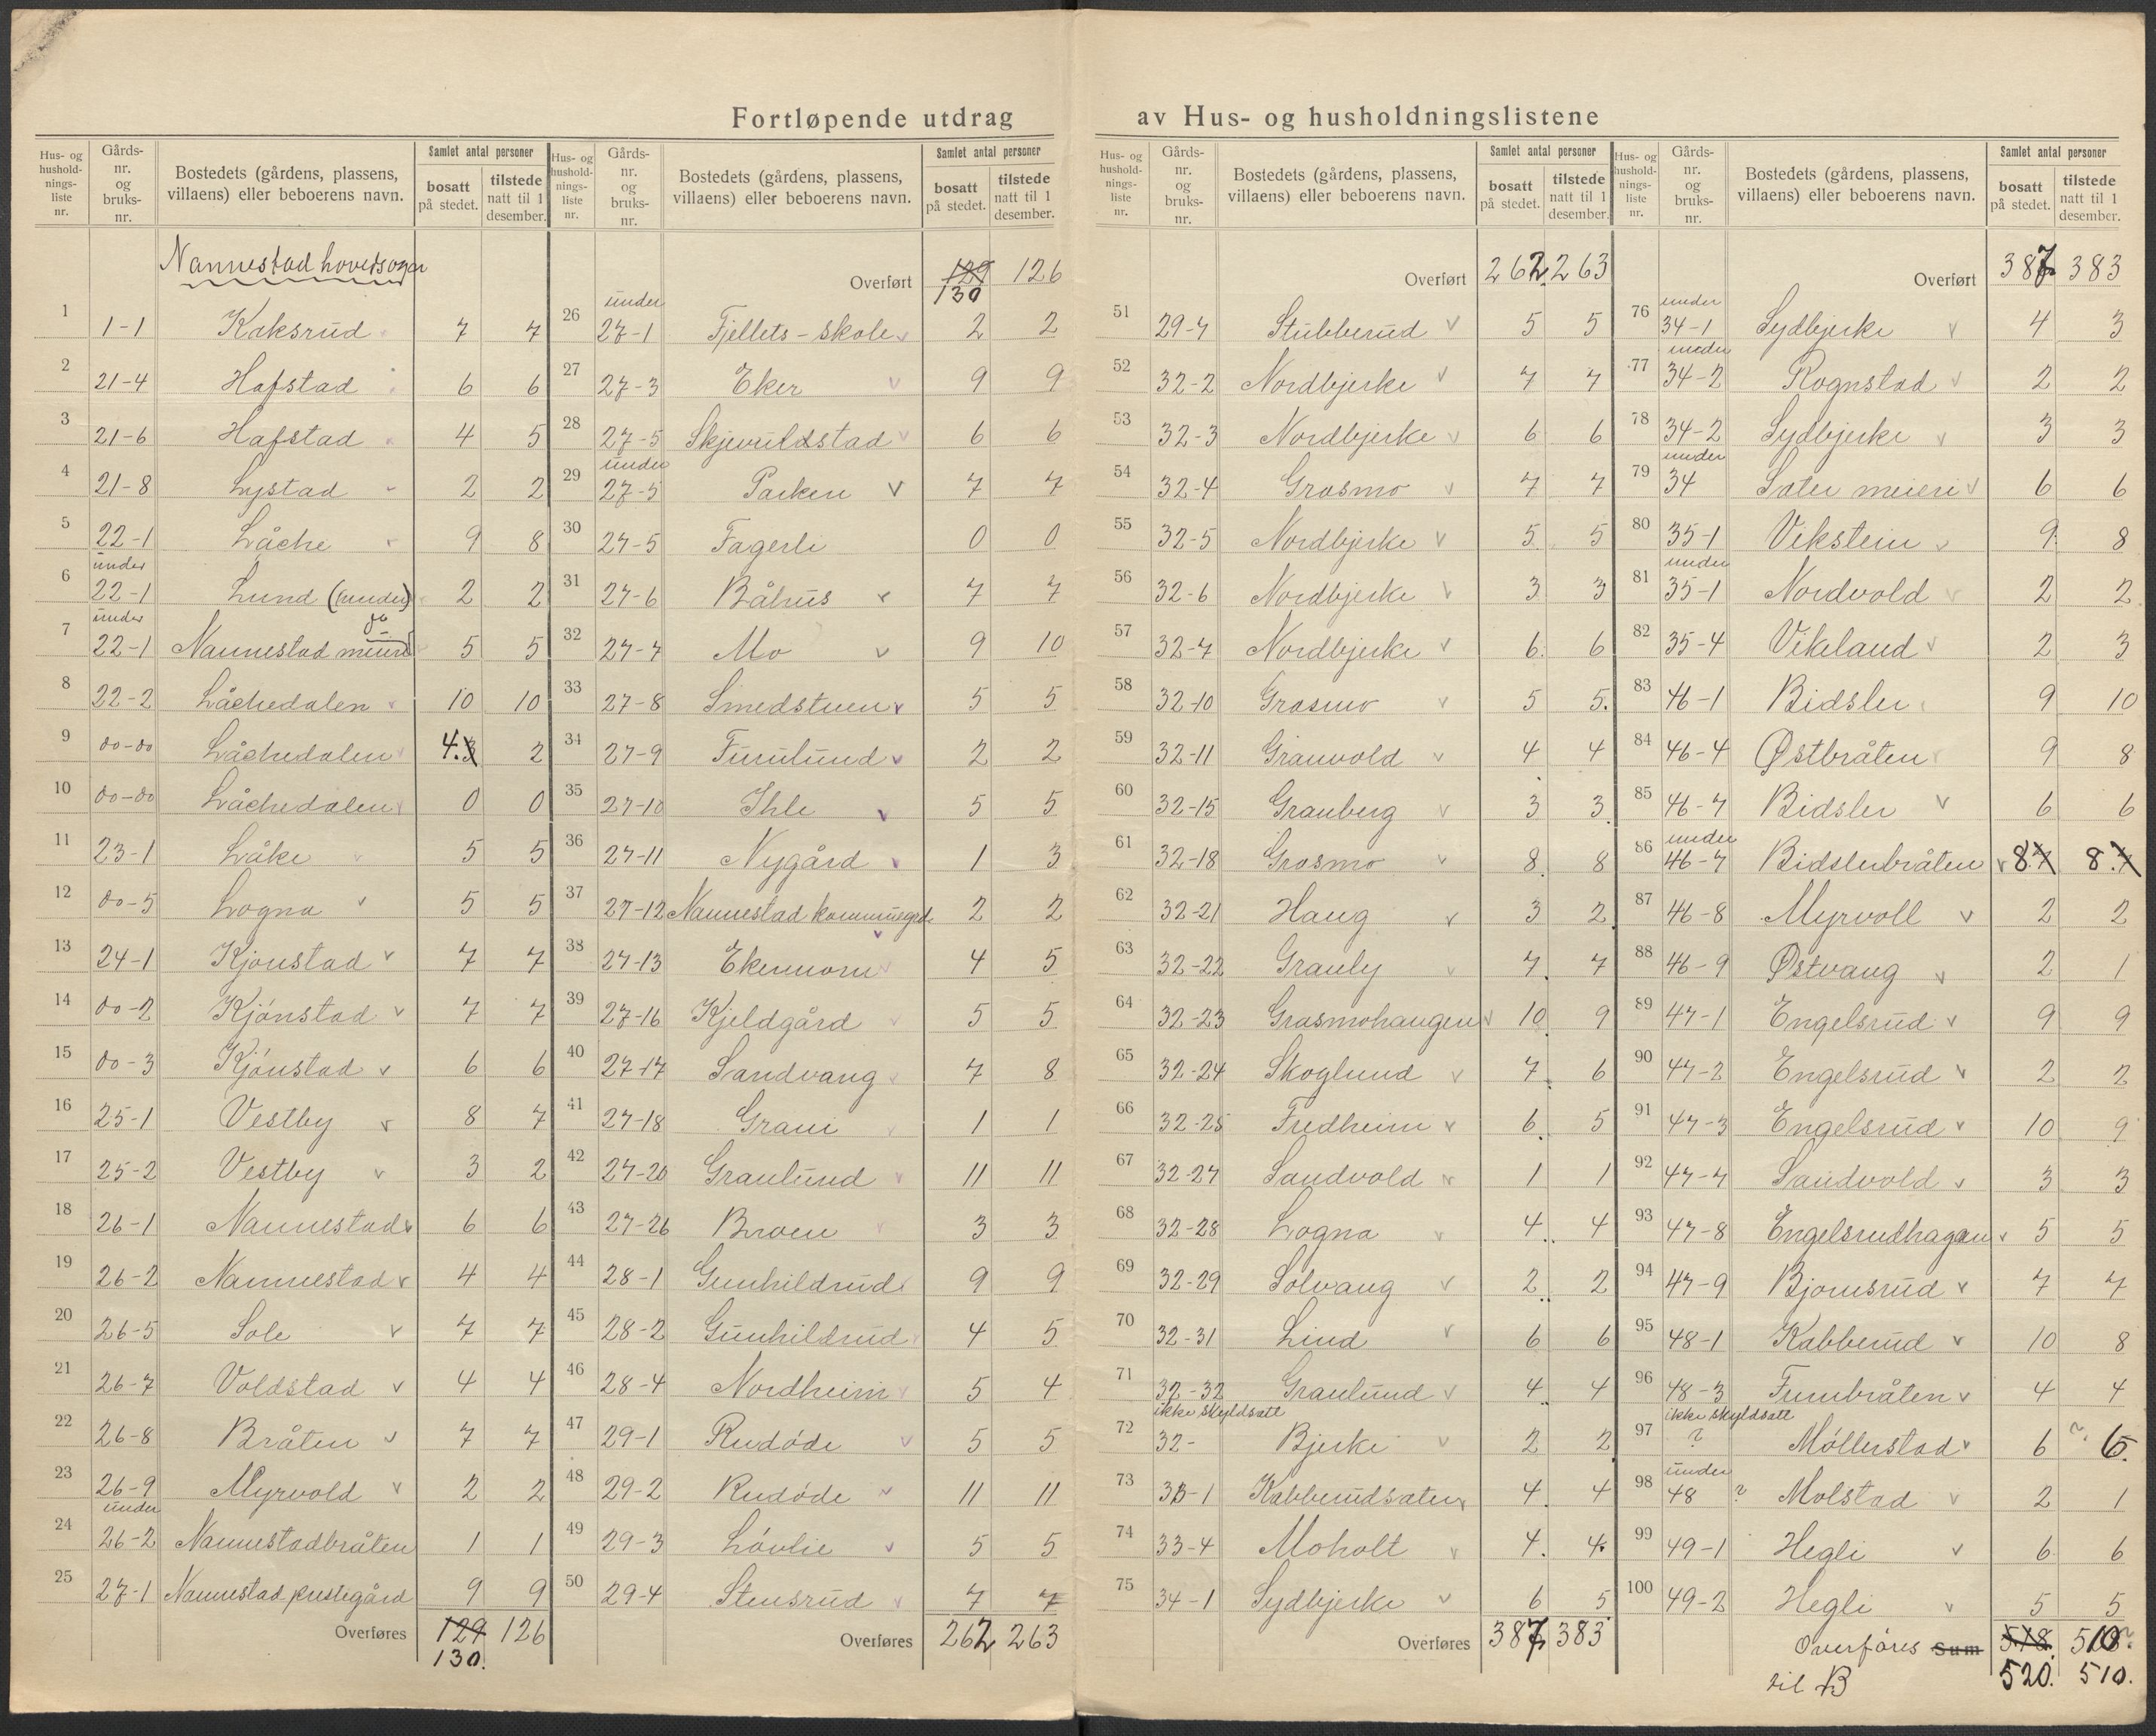 Fortløpende utdrag av Hus- og husholdningslistene
Hus- og husholdnings-liste nr. Gårds-nr. og bruks-nr. Bostedets (gårdens, plassens, villaens) eller beboerens navn. Samlet antal personer bosatt på stedet. tilstede natt til 1 desember.
Nannestad hovedsogn
1 1-1 Kaksrud 7 7
2 21-4 Hafstad 6 6
3 21-6 Hafstad 4 5
4 21-8 Lystad 2 2
5 22-1 Låche 9 8
6 under 22-1 Lund (under) 2 2
7 under 22-1 Nannestad meieri 5 5
8 22-2 Låchedalen 10 10
9 do-do Låchedalen 4. 3 2
10 do-do Låchedalen 0 0
11 23-1 Låke 5 5
12 do-5 Logna 5 5
13 24-1 Kjønstad 7 7
14 do-2 Kjønstad 7 7
15 do-3 Kjønstad 6 6
16 25-1 Vestby 8 7
17 25-2 Vestby 3 2
18 26-1 Nannestad 6 6
19 26-2 Nannestad 4 4
20 26-5 Sole 7 7
21 26-7 Voldstad 4 4
22 26-8 Bråten 7 7
23 26-9 Myrvold 2 2
24 under 26-2 Nannestadbråten 1 1
25 27-1 Nannestad prestegård 9 9
Overføres 129 126
130.
Hus- og husholdnings-liste nr. Gårds-nr. og bruks-nr. Bostedets (gårdens, plassens, villaens) eller beboerens navn. Samlet antal personer bosatt på stedet. tilstede natt til 1 desember.
Overført 129 126
130
26 under 27-1 Fjellets-skole 2 2
27 27-3 Eker 9 9
28 27-5 Skjevuldstad 6 6
29 under 27-5 Parken 7 7
30 27-5 Fagerli 0 0
31 27-6 Båhus 7 7
32 27-7 Mo 9 10
33 27-8 Smedstuen 5 5
34 27-9 Furulund 2 2
35 27-10 Ihle 5 5
36 27-11 Nygård 1 3
37 27-12 Nannestad kommunegård 2 2
38 27-13 Ekermorn 4 5
39 27-16 Kjeldgård 5 5
40 27-17 Sandvang 7 8
41 27-18 Gran 1 1
42 27-20 Granlund 11 11
43 27-26 Broen 3 3
44 28-1 Gunhildrud 9 9
45 28-2 Gunhildrud 4 5
46 28-4 Nordheim 5 4
47 29-1 Rudøde 5 5
48 29-2 Rudøde 11 11
49 29-3 Løvlie 5 5
50 29-4 Stensrud 7 7
Overføres 262 263
Hus- og husholdnings-liste nr. Gårds-nr. og bruks-nr. Bostedets (gårdens, plassens, villaens) eller beboerens navn. Samlet antal personer bosatt på stedet. tilstede natt til 1 desember.
Overført 262 263
51 29-7 Stubberud 5 5
52 32-2 Nordbjerke 7 7
53 32-3 Nordbjerke 6 6
54 32-4 Grasmo 7 7
55 32-5 Nordbjerke 5 5
56 32-6 Nordbjerke 3 3
57 32-7 Nordbjerke 6 6
58 32-10 Grasmo 5 5
59 32-11 Granvold 4 4
60 32-15 Granberg 3 3
61 32-18 Grasmo 8 8
62 32-21 Haug 3 2
63 32-22 Granly 7 7
64 32-23 Grasmohaugen 10 9
65 32-24 Skoglund 7 6
66 32-25 Fredheim 6 5
67 32-27 Sandvold 1 1
68 32-28 Logna 4 4
69 32-29 Solvang 2 2
70 32-31 Lind 6 6
71 32-32 Granlund 4 4
72 ikke skyldsatt 32- Bjerke 2 2
73 33-1 Kabberudsæter 4 4
74 33-4 Moholt 4 4
75 34-1 Sydbjerke 6 5
Overføres 387 383
Hus- og husholdnings-liste nr. Gårds-nr. og bruks-nr. Bostedets (gårdens, plassens, villaens) eller beboerens navn. Samlet antal personer bosatt på stedet. tilstede natt til 1 desember.
Overført 387 383
76 under 34-1 Sydbjerke 4 3
77 under 34-2 Rognstad 2 2
78 34-2 Sydbjerke 3 3
79 under 34 Sater meieri 6 6
80 35-1 Vikstein 9 8
81 under 35-1 Nordvold 2 2
82 35-4 Vikeland 2 3
83 46-1 Bidsler 9 10
84 46-4 Østbråten 9 8
85 46-7 Bidsler 6 6
86 under 46-7 Bidslerbråten 8. 7 8. 7
87 46-8 Myrvoll 2 2
88 46-9 Østvang 2 1
89 47-1 Engelsrud 9 9
90 47-2 Engelsrud 2 2
91 47-3 Engelsrud 10 9
92 47-7 Sandvold 3 3
93 47-8 Engelsrudhagan 5 5
94 47-9 Bjornsrud 7 7
95 48-1 Kabberud 10 8
96 48-3 Furubråten 4 4
97 ikke skyldsatt ? Møllerstad 6 ? 6.
98 under 48 ? Molstad 2 1
99 49-1 Hegli 6 6
100 49-2 Hegli 5 5
Overføres Sum 518. 510
til B 520. 510.